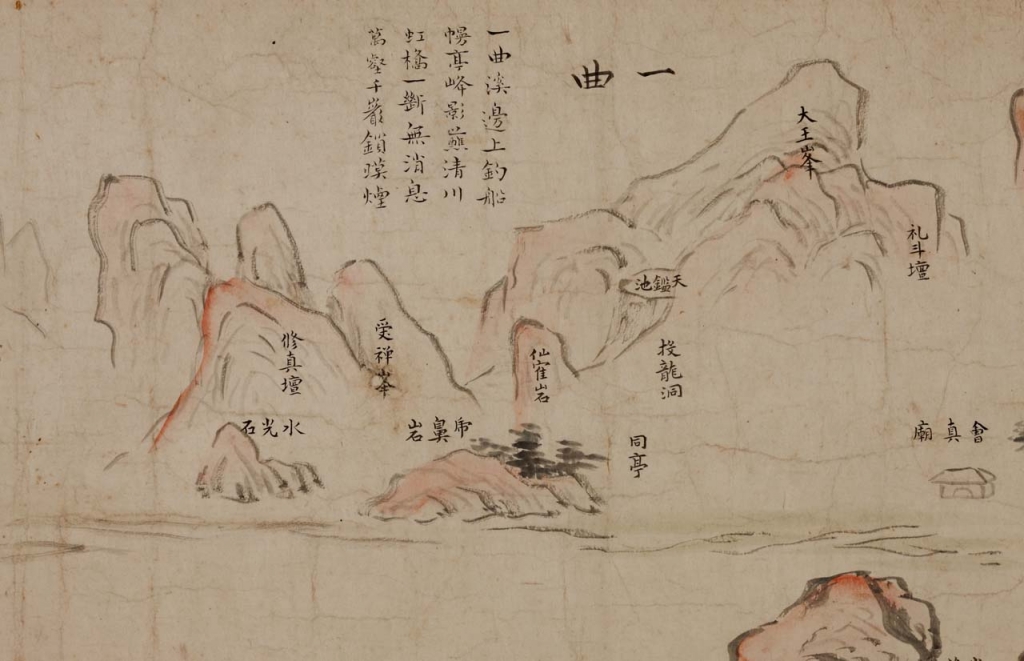 一曲
一曲溪邊上釣船
幔亭峰影蘸清川
虹橋一斷無消息
萬壑千巖鎖暝煙
大王峯
礼斗壇
天鑑池
投龍洞
仙隺岩
㕛禅峯
修真壇
水光石
鼻岩
同亭
會真廟